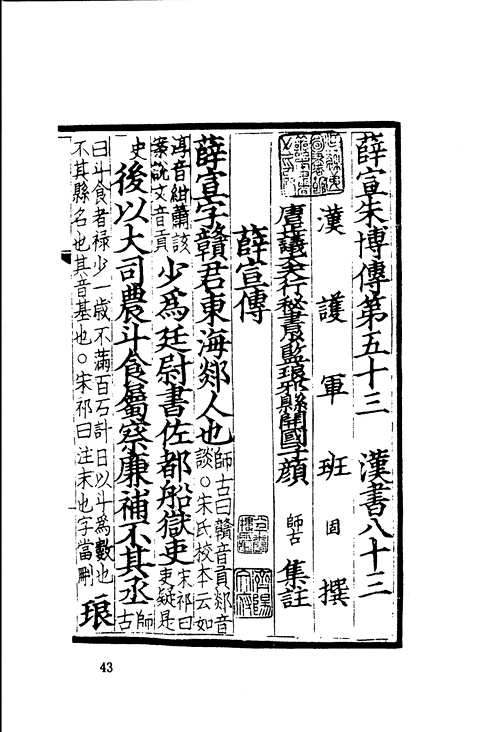 薛宣朱博傳第五十三 漢書八十三
漢護軍班固撰
唐正議大夫行秘書少監琅邪縣開國子顏師古集註
薛宣傳
薛宣字贛君東海郯人也師古曰贛音貢郯音談○宋氏校本云如
淳音紺蕭該案說文音貢少爲廷尉書佐都船獄吏宋祁曰吏疑是
史後以大司農斗食屬察廉補不其丞師古
曰斗食者祿少一歲不滿百石計日以斗爲數也不其縣名也其音基也○宋祁曰注末也字當刪琅
43